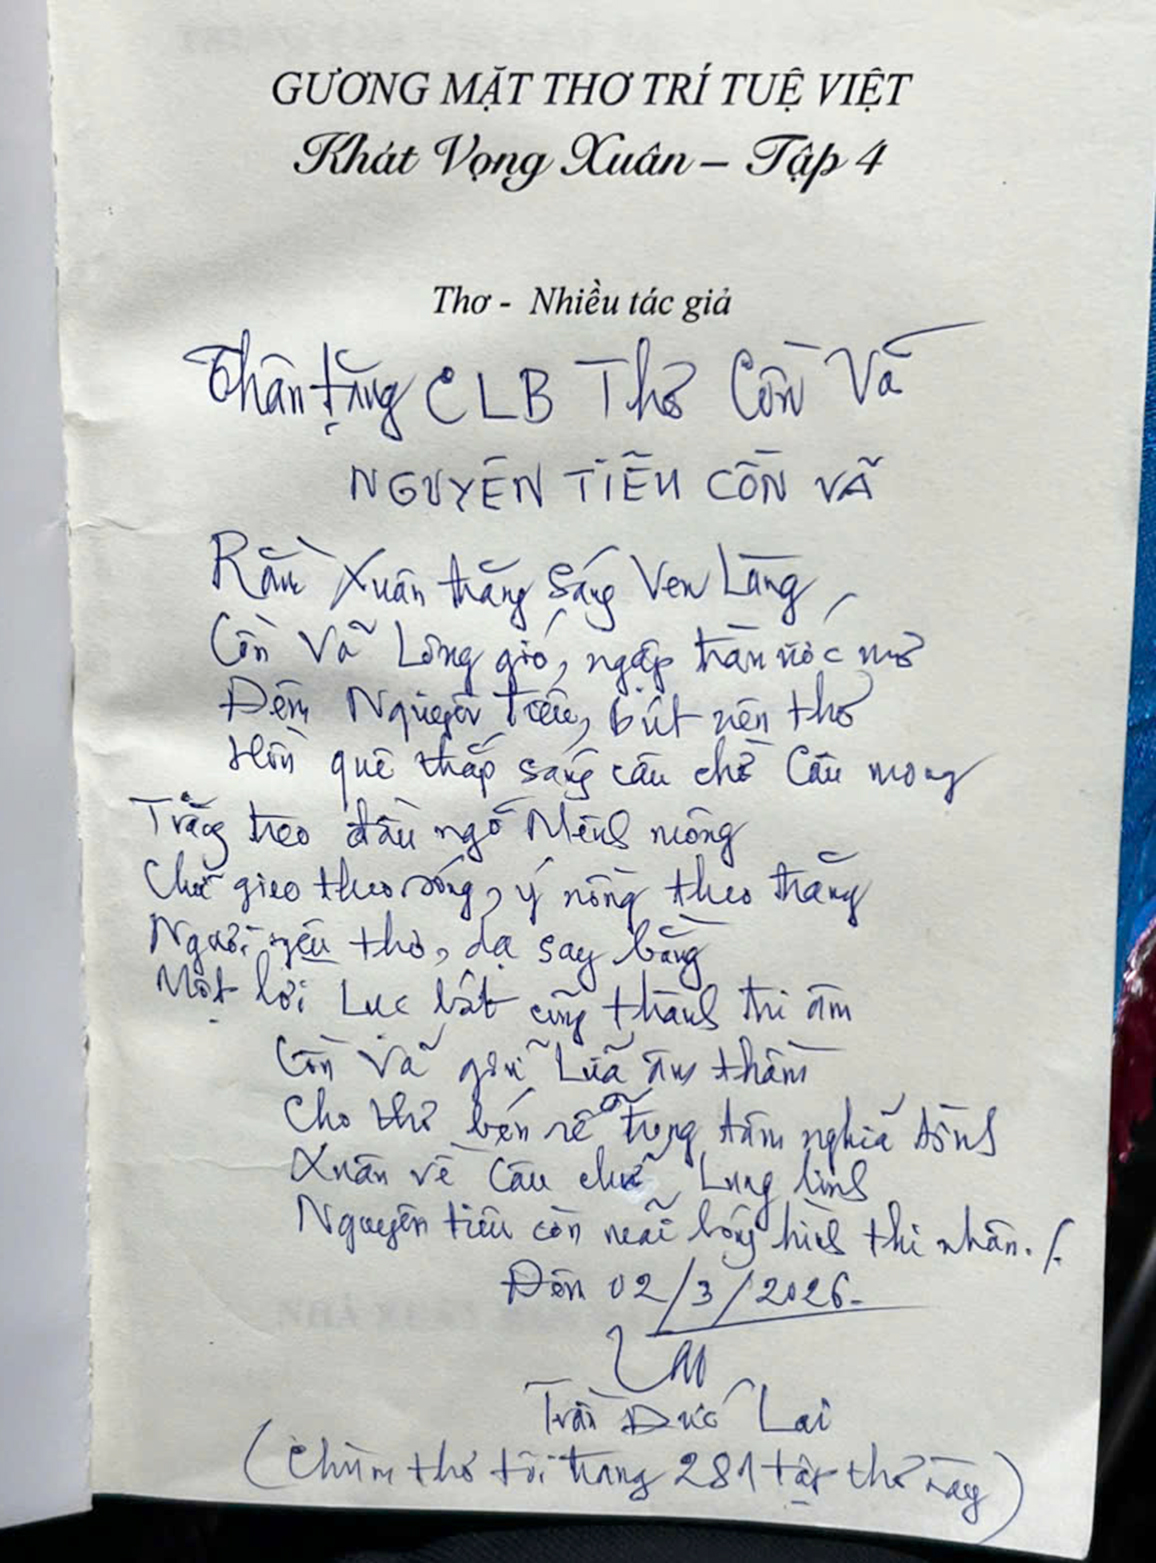 GƯƠNG MẶT THƠ TRÍ TUỆ VIỆT
Khát Vọng Xuân – Tập 4
Thơ - Nhiều tác giả
Thân tặng CLB Thơ Cồn Vã
NGUYÊN TIÊU CỒN VÃ
Rằm Xuân trăng sáng Ven Làng
Cồn Vã Lộng gió, ngập tràn ước mơ
Đêm Nguyên Tiêu, bút nên thơ
Hồn quê thắp sáng câu chờ Câu mong
Trăng treo đầu ngõ Mênh mông
Chữ gieo theo sóng, ý nồng theo trăng
Người yêu thơ, dạ say bằng
Một lời Lục bát cũng thành thi âm
Cồn Vã giữ Lửa âm thầm
Cho thơ bén rễ trong tâm nghĩa tình
Xuân về Câu chữ Lung linh
Nguyên tiêu còn mãi bóng hình thi nhân./.
Đêm 02/3/2026.
Trần Đức Lai
(Chùm thơ tôi trang 281 tập thơ này)